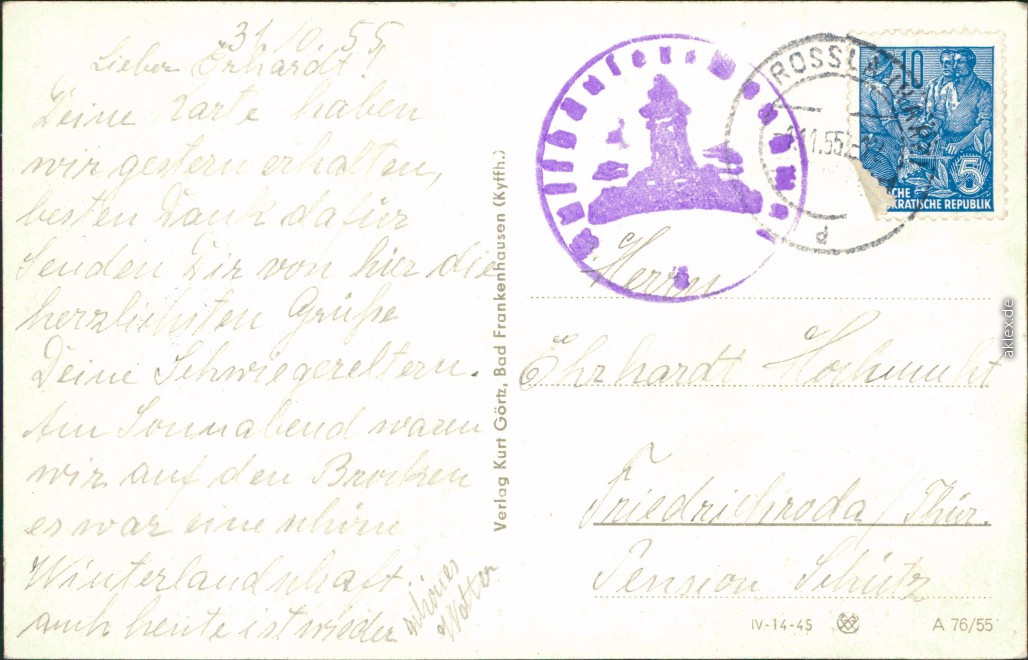 31.10.55
Lieber Erhardt!
Deine Karte haben
wir gestern erhalten,
besten Dank dafür
Senden Dir von hier die
herzlichsten Grüße
Deine Schwiegereltern.
Am Sonnabend waren
wir auf den Brocken
es war eine schöne
Winterlandschaft.
auch heute ist wieder
schönes
Wetter
Verlag Kurt Görtz, Bad Frankenhausen (Kyffh.)
ROSSLA
1.11.55
d
10
5
SCHE
KRATISCHE REPUBLIK
Herrn
Ehrhardt Hochmuht
Friedrichroda/Thür.
Pension Schütz
IV-14-45
A 76/55
aklex.de